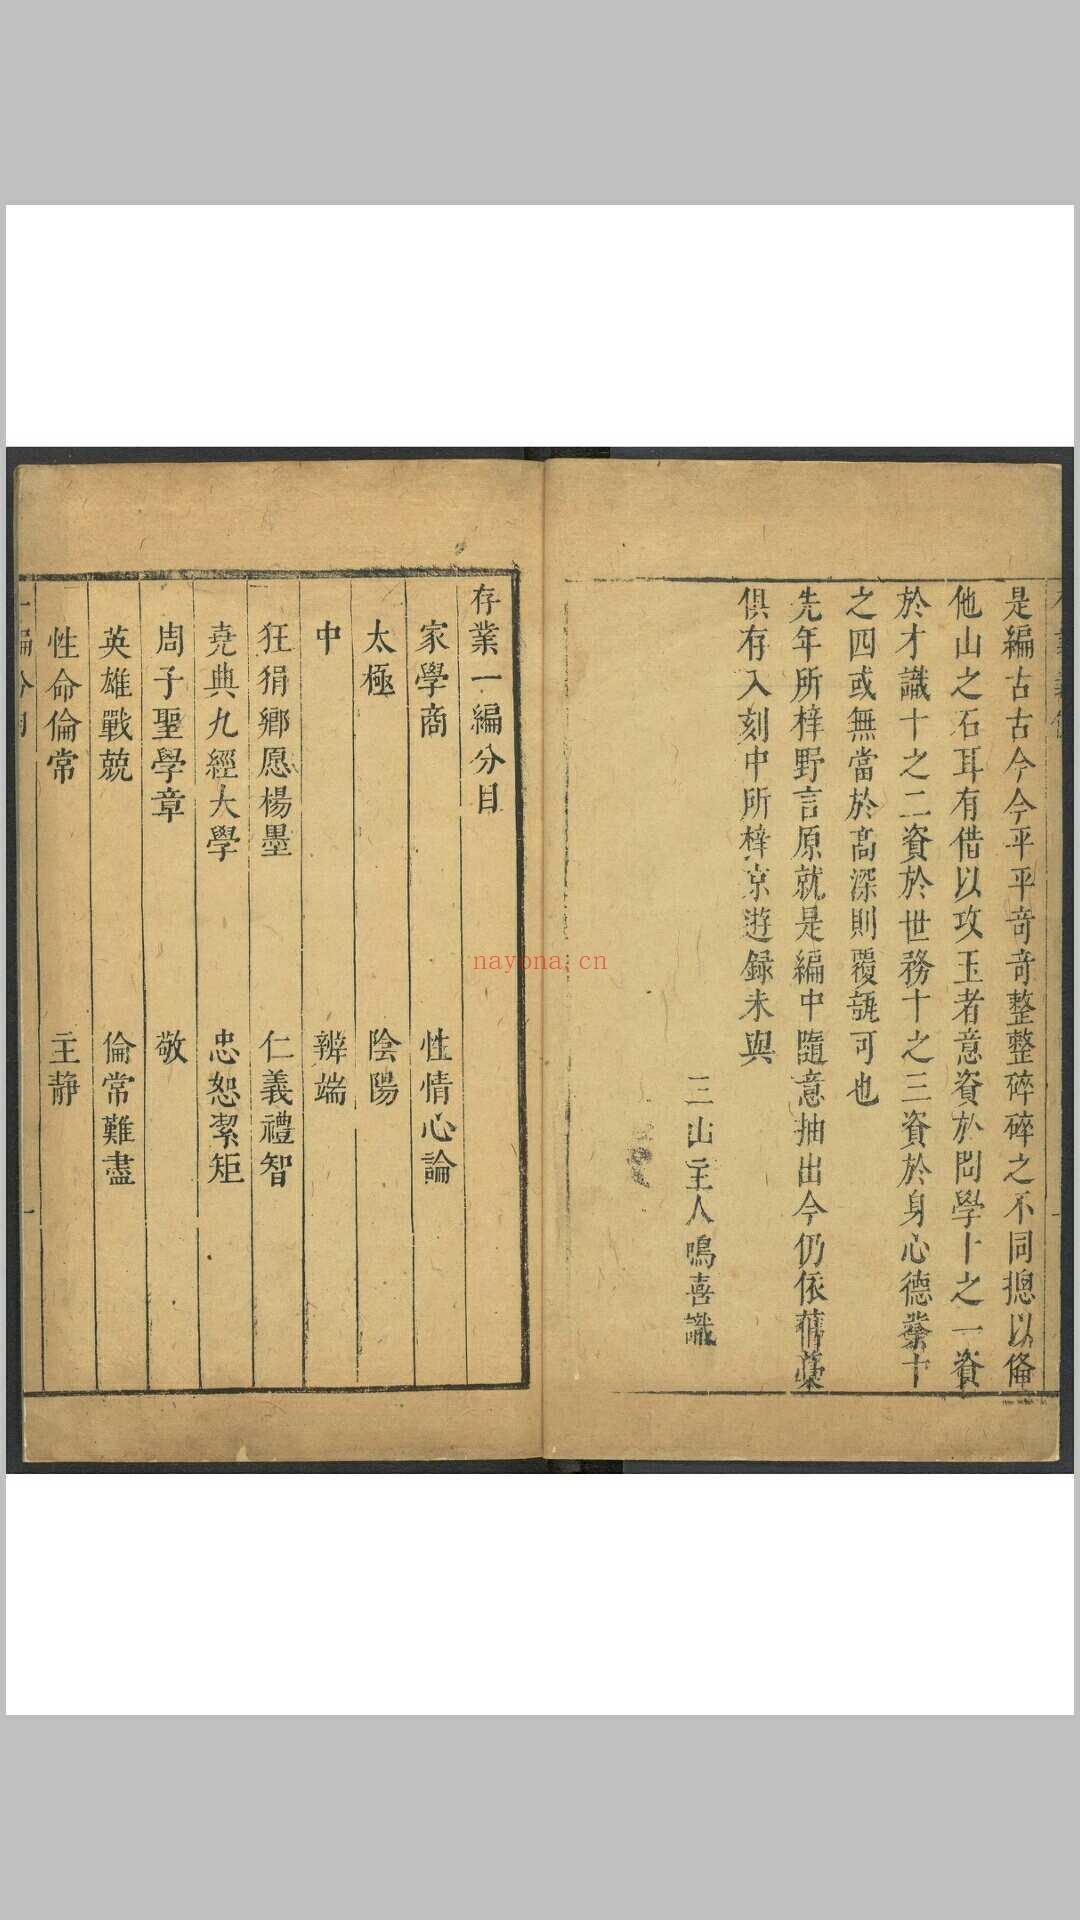 是編古古今今平平奇奇整整碎碎之不同摠以俻
他山之石耳有借以攻玉者意資於問學十之一資
於才識十之二資於世務十之三資於身心德業十
之四或無當於高深則覆瓿可也
先年所梓野言原就是編中隨意抽出今仍依舊藁
俱存入刻中所梓京遊録未與
三山主人鳴喜識
存業一編分目
家學商　性情心論
太極　陰陽
中　辨端
狂狷鄉愿楊墨　仁義禮智
堯典九經大學　忠恕絜矩
周子聖學章　敬
英雄戰兢　倫常難盡
性命倫常　主靜
一編分目　一
nayona.cn